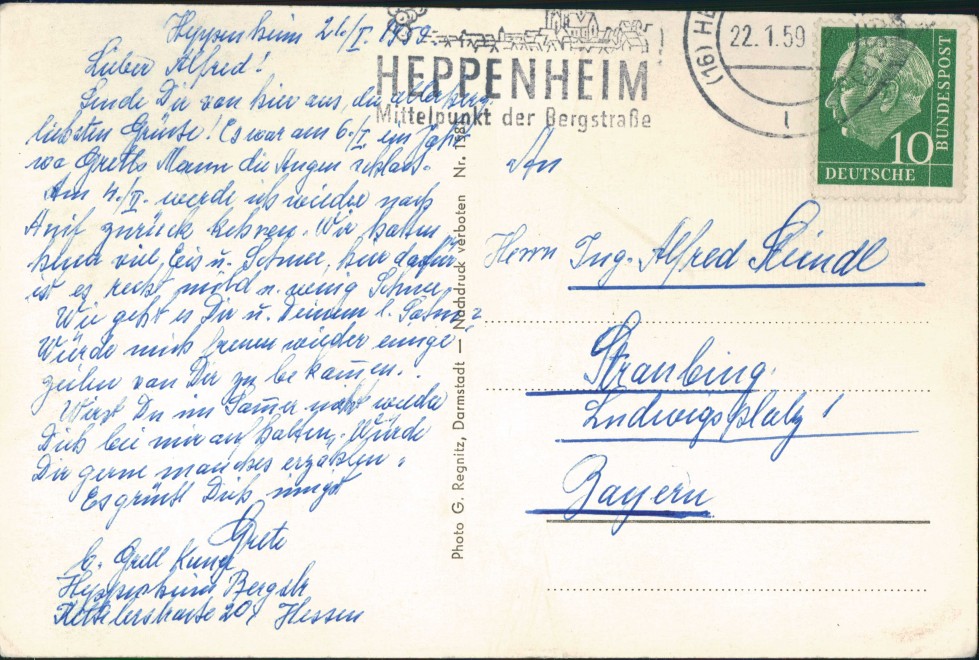 Heppenheim 21./I. 1959
Lieber Alfred!
Sende Dir von hier aus, die allerherz-
liebsten Grüsse! Es war am 6./I. ein Jahr,
wo Gretls Mann die Augen schloss.
Am 4./II. werde ich wieder nach
Anif zurück kehren. Wir hatten
viel Eis u. Schnee, hier dafür
ist es recht mild u. wenig Schnee.
Wie geht es Dir u. Deinem l. Sohn?
Würde mich freuen wieder einige
Zeilen von Dir zu bekom̄en.
Wirst Du im Som̄er nicht wieder
Dich bei mir aufhalten. Würde
Dir gerne manches erzählen.
Es grüsst Dich innigst
Grete
Heppenheim Bergstr
Kettelerstrasse 20 Hessen
HEPPENHEIM
Mittelpunkt der Bergstraße
(16) HE
22.1.59
10
DEUTSCHE
BUNDESPOST
Photo G. Regnitz, Darmstadt — Nachdruck verboten Nr. 158
An
Herrn Ing. Alfred
Straubing.
Ludwigsplatz 1
Bayern